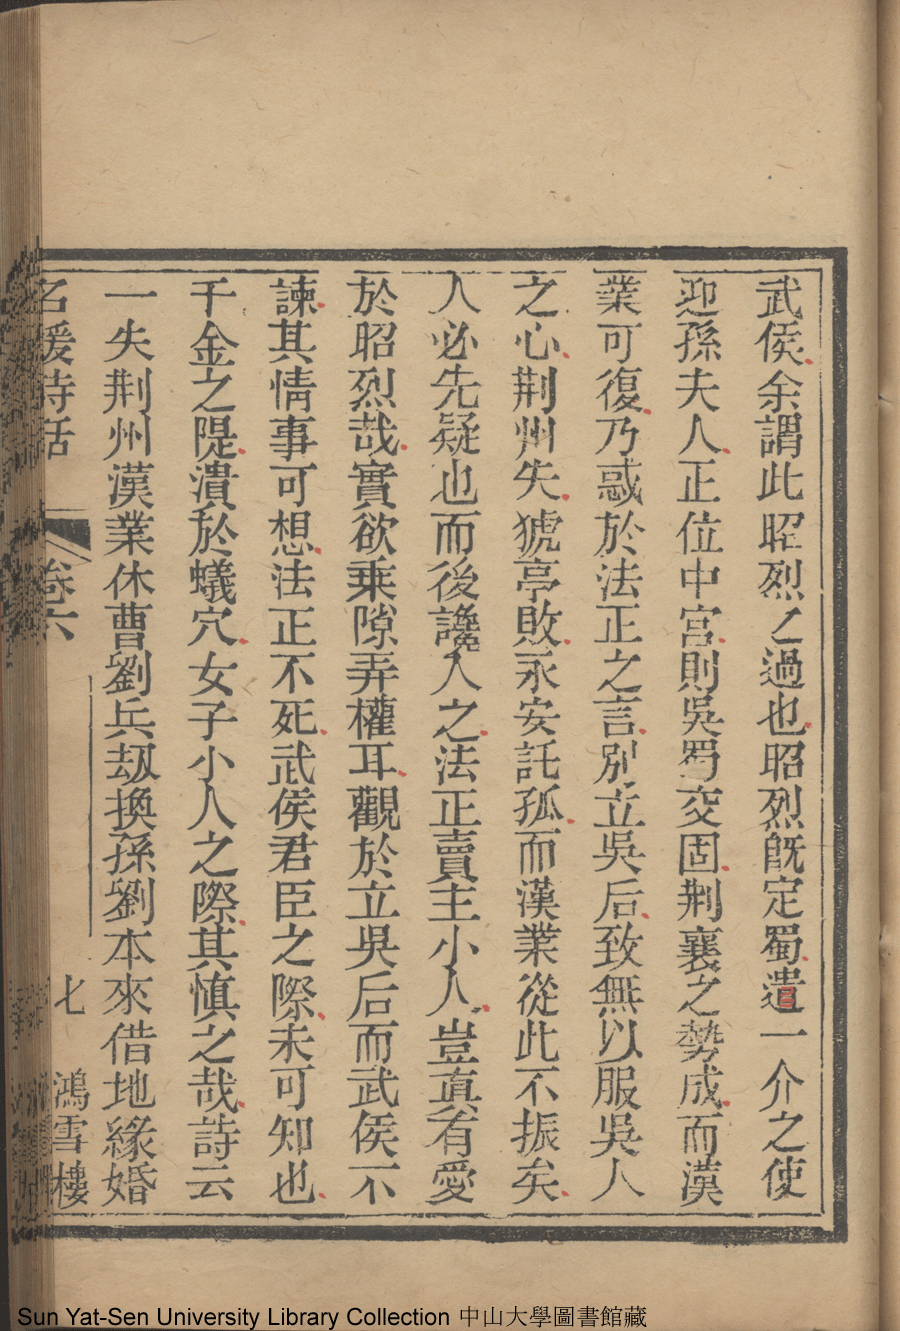 武侯余謂此昭烈之過也昭烈既定蜀遣一介之使
迎孫夫人正位中宮則吳蜀交固荆襄之勢成而漢
業可復乃惑於法正之言別立吳后致無以服吳人
之心荆州失猇亭敗永安託孤而漢業從此不振矣
人必先疑也而後讒入之法正賣主小人豈真有愛
於昭烈哉實欲乗隙弄權耳觀於立吳后而武侯不
諫其情事可想法正不死武侯君臣之際未可知也
千金之隄潰於蟻穴女子小人之際其慎之哉詩云
一失荆州漢業休曹劉兵刼換孫劉本來借地緣婚
名媛詩話 卷六 七 鴻雪樓
Sun Yat-Sen University Library Collection 中山大學圖書館藏